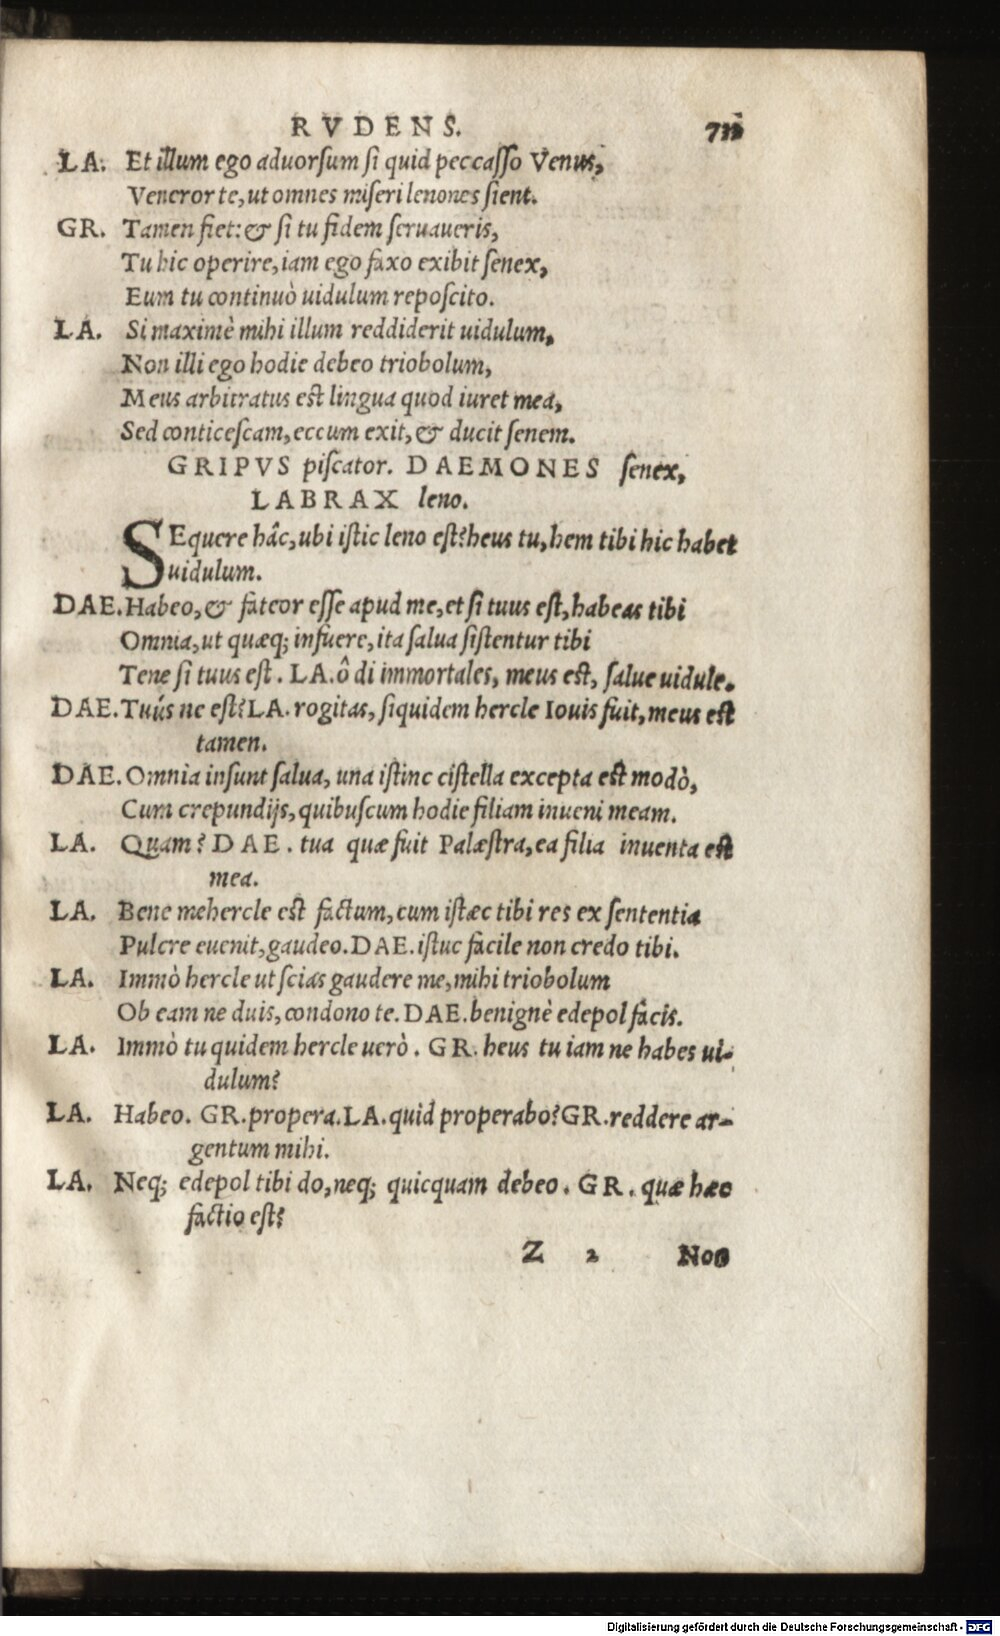 RVDENS.
LA. Et illum ego aduorsum si quid peccasso Venus,
Veneror te, ut omnes miseri lenones sient.
GR. Tamen fiet: & si tu fidem seruaueris,
Tu hic operire, iam ego faxo exibit senex,
Eum tu continuò uidulum reposcito.
LA. Si maximè mihi illum reddiderit uidulum,
Non illi ego hodie debeo triobolum,
Meus arbitratus est lingua quod iuret mea,
Sed conticescam, eccum exit, & ducit senem.
GRIPVS piscator. DAEMONES senex,
LABRAX leno.
SEquere hâc, ubi istic leno est? heus tu, hem tibi hic habet
uidulum.
DAE. Habeo, & fateor esse apud me, et si tuus est, habeas tibi
Omnia, ut quæq; infuere, ita salua sistentur tibi
Tene si tuus est. LA. ô di immortales, meus est, salue uidule.
DAE. Tuús ne est? LA. rogitas, siquidem hercle Iouis fuit, meus est
tamen.
DAE. Omnia insunt salua, una istinc cistella excepta est modò,
Cum crepundijs, quibuscum hodie filiam inueni meam.
LA. Quam? DAE. tua quæ fuit Palæstra, ea filia inuenta est
mea.
LA. Bene mehercle est factum, cum istæc tibi res ex sententia
Pulcre euenit, gaudeo. DAE. istuc facile non credo tibi.
LA. Immò hercle ut scias gaudere me, mihi triobolum
Ob eam ne duis, condono te. DAE. benignè edepol facis.
LA. Immò tu quidem hercle uerò. GR. heus tu iam ne habes ui-
dulum?
LA. Habeo. GR. propera. LA. quid properabo? GR. reddere ar-
gentum mihi.
LA. Neq; edepol tibi do, neq; quicquam debeo. GR. quæ hæc
factio est?
Z 2 Non
Digitalisierung gefördert durch die Deutsche Forschungsgemeinschaft - DFG